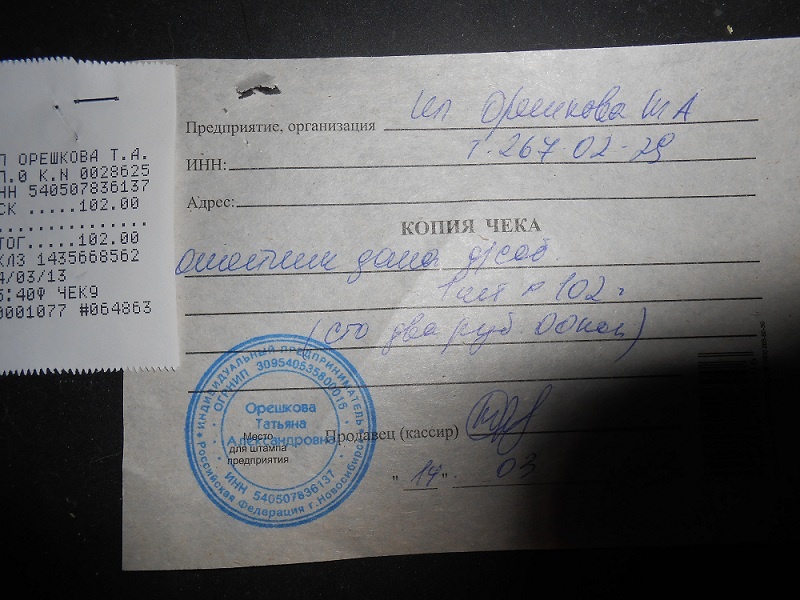 П ОРЕШКОВА Т.А.
П.0 К.N 0028625
НН 540507836137
СК .....102.00
ТОГ.....102.00
КЛЗ 1435668562
4/03/13
5:40Ф ЧЕК9
0001077 #064863
Предприятие, организация ИП Орешкова ТА
т. 267-02-29
ИНН:
Адрес:
КОПИЯ ЧЕКА
ошейник дама д/соб
1 шт 102
(сто два руб. 00коп)
ИНДИВИДУАЛЬНЫЙ ПРЕДПРИНИМАТЕЛЬ
ОГРНИП 309540535800016
Орешкова
Татьяна
Александровна
Место
для штампа
предприятия
ИНН 540507836137
Российская Федерация г.Новосибирск
Продавец (кассир)
"14". 03